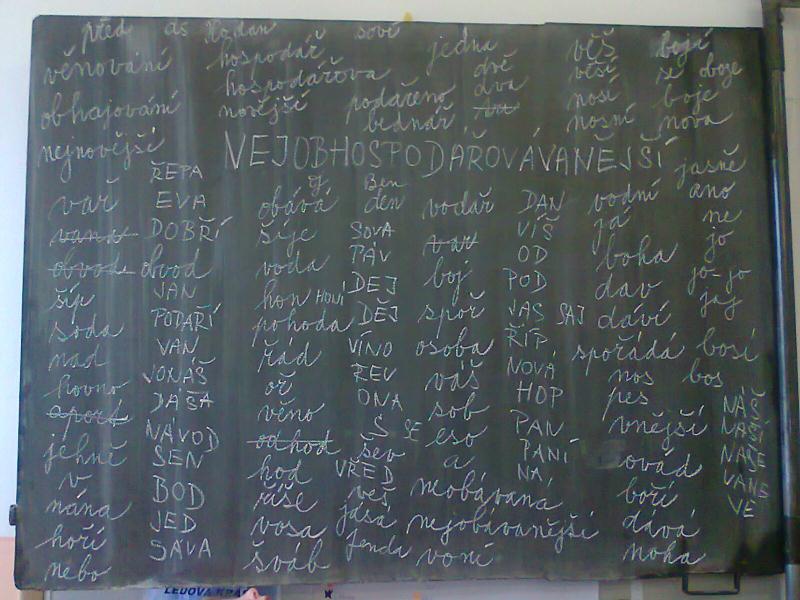 před as Hodan sově
věnování hospodář jedna věš bojí
hospodářova dvě věší se oboje
obhajování novější podařeno dva nosí boje
bednář nosní nova
nejnovější
NEJOBHOSPODAŘOVÁVANĚJŠÍ
ŘEPA Ben jasně
vař EVA obává den vodář DAN vodní ano
vana DOBŘÍ šije SOVA var VÍŠ já ne
obvod dvod voda PÁV boj OD boha jo
šíp JAN hon HONÍ DEJ spoř POD dav jo-jo
soda PODAŘÍ pohoda DĚJ osoba JAS SAJ dáví jaj
nad VAN řád VÍNO váš ŘÍP spořádá bosí
hovno JONÁŠ oř ŘEV sob NOVÁ nos bos
sport DÁŠA věno ONA eso HOP pes NÁŠ
jehně NÁVOD odhod Š SE a PAN vnější NAŠÍ
v SEN hod šev neobávaná PANÍ ovád NAŠE
nána BOD říše VŘED nejobávanější NA boří VÁNĚ
hoří JED vosa veš voní dává VĚ
nebo SÁVA šváb jásá noha
fenda
LEDOVÁ